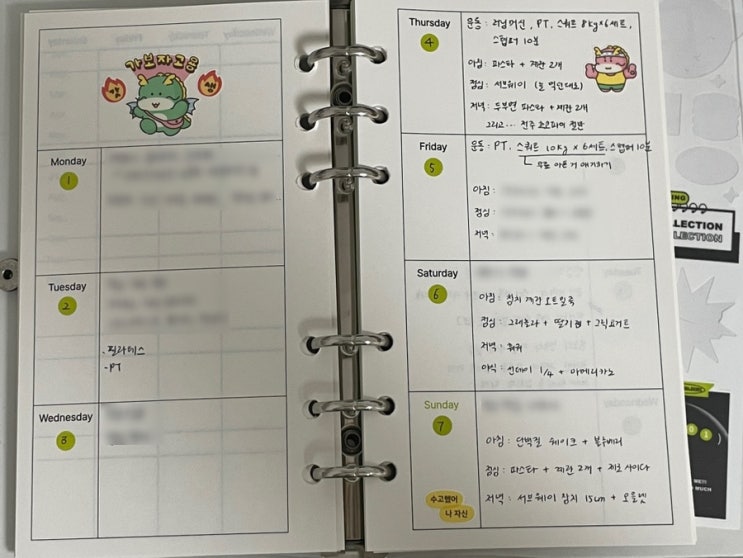 가보자고웅
Monday
1
Tuesday
2
- 필라테스
- PT
Wednesday
3
Thursday
4
운동 : 러닝머신, PT, 스쿼트 8kg×6세트,
스텝퍼 10분
아침 : 파스타 + 계란 2개
점심 : 서브웨이 (늘 먹던대로)
저녁 : 두부면 파스타 + 계란 2개
그리고... 전주 초코파이 절반
Friday
5
운동 : PT, 스쿼트 10kg × 6세트, 스텝퍼 10분
무릎 아픈 거 얘기하기
아침 :
점심 :
저녁 :
Saturday
6
아침 : 참치 계란 오트밀죽
점심 : 그래놀라 + 딸기 + 그릭요거트
저녁 : 훠궈
야식 : 선데이 1/4 + 아메리카노
Sunday
7
아침 : 단백질 쉐이크 + 블루베리
점심 : 파스타 + 계란 2개 + 제로 사이다
저녁 : 서브웨이 참치 15cm + 오믈렛
수고했어
나 자신
LECTION
LECTION